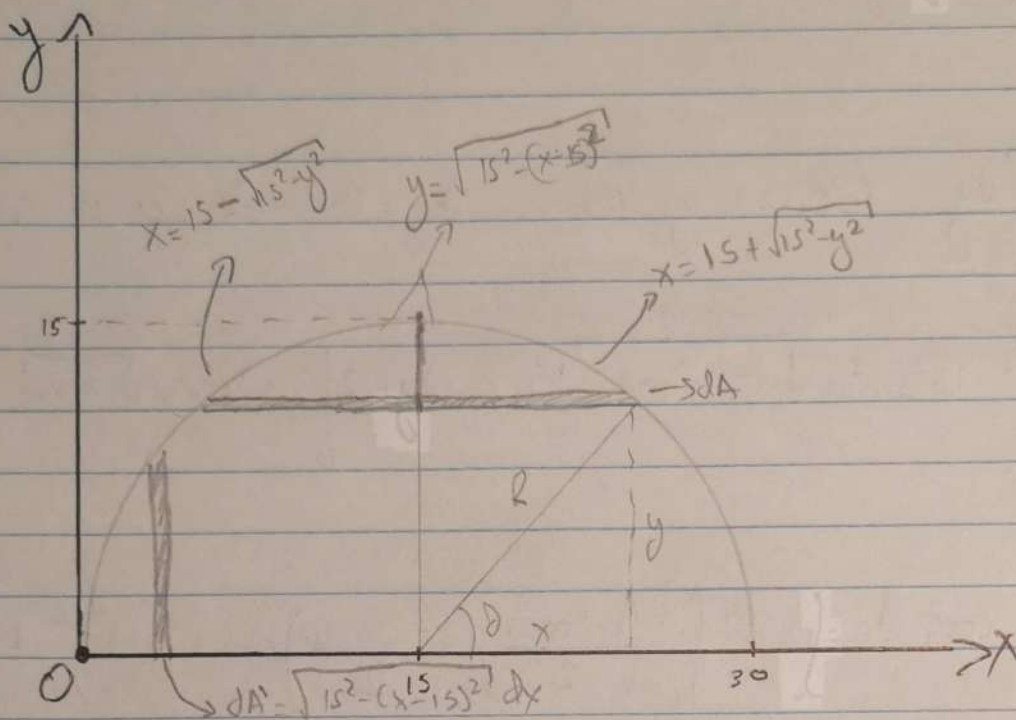 y
x = 15 - √(15² - y²)
y = √(15² - (x - 15)²)
x = 15 + √(15² - y²)
15
→ dA
R
y
θ
x
O
15
30
X
dA = √(15² - (x - 15)²) dx